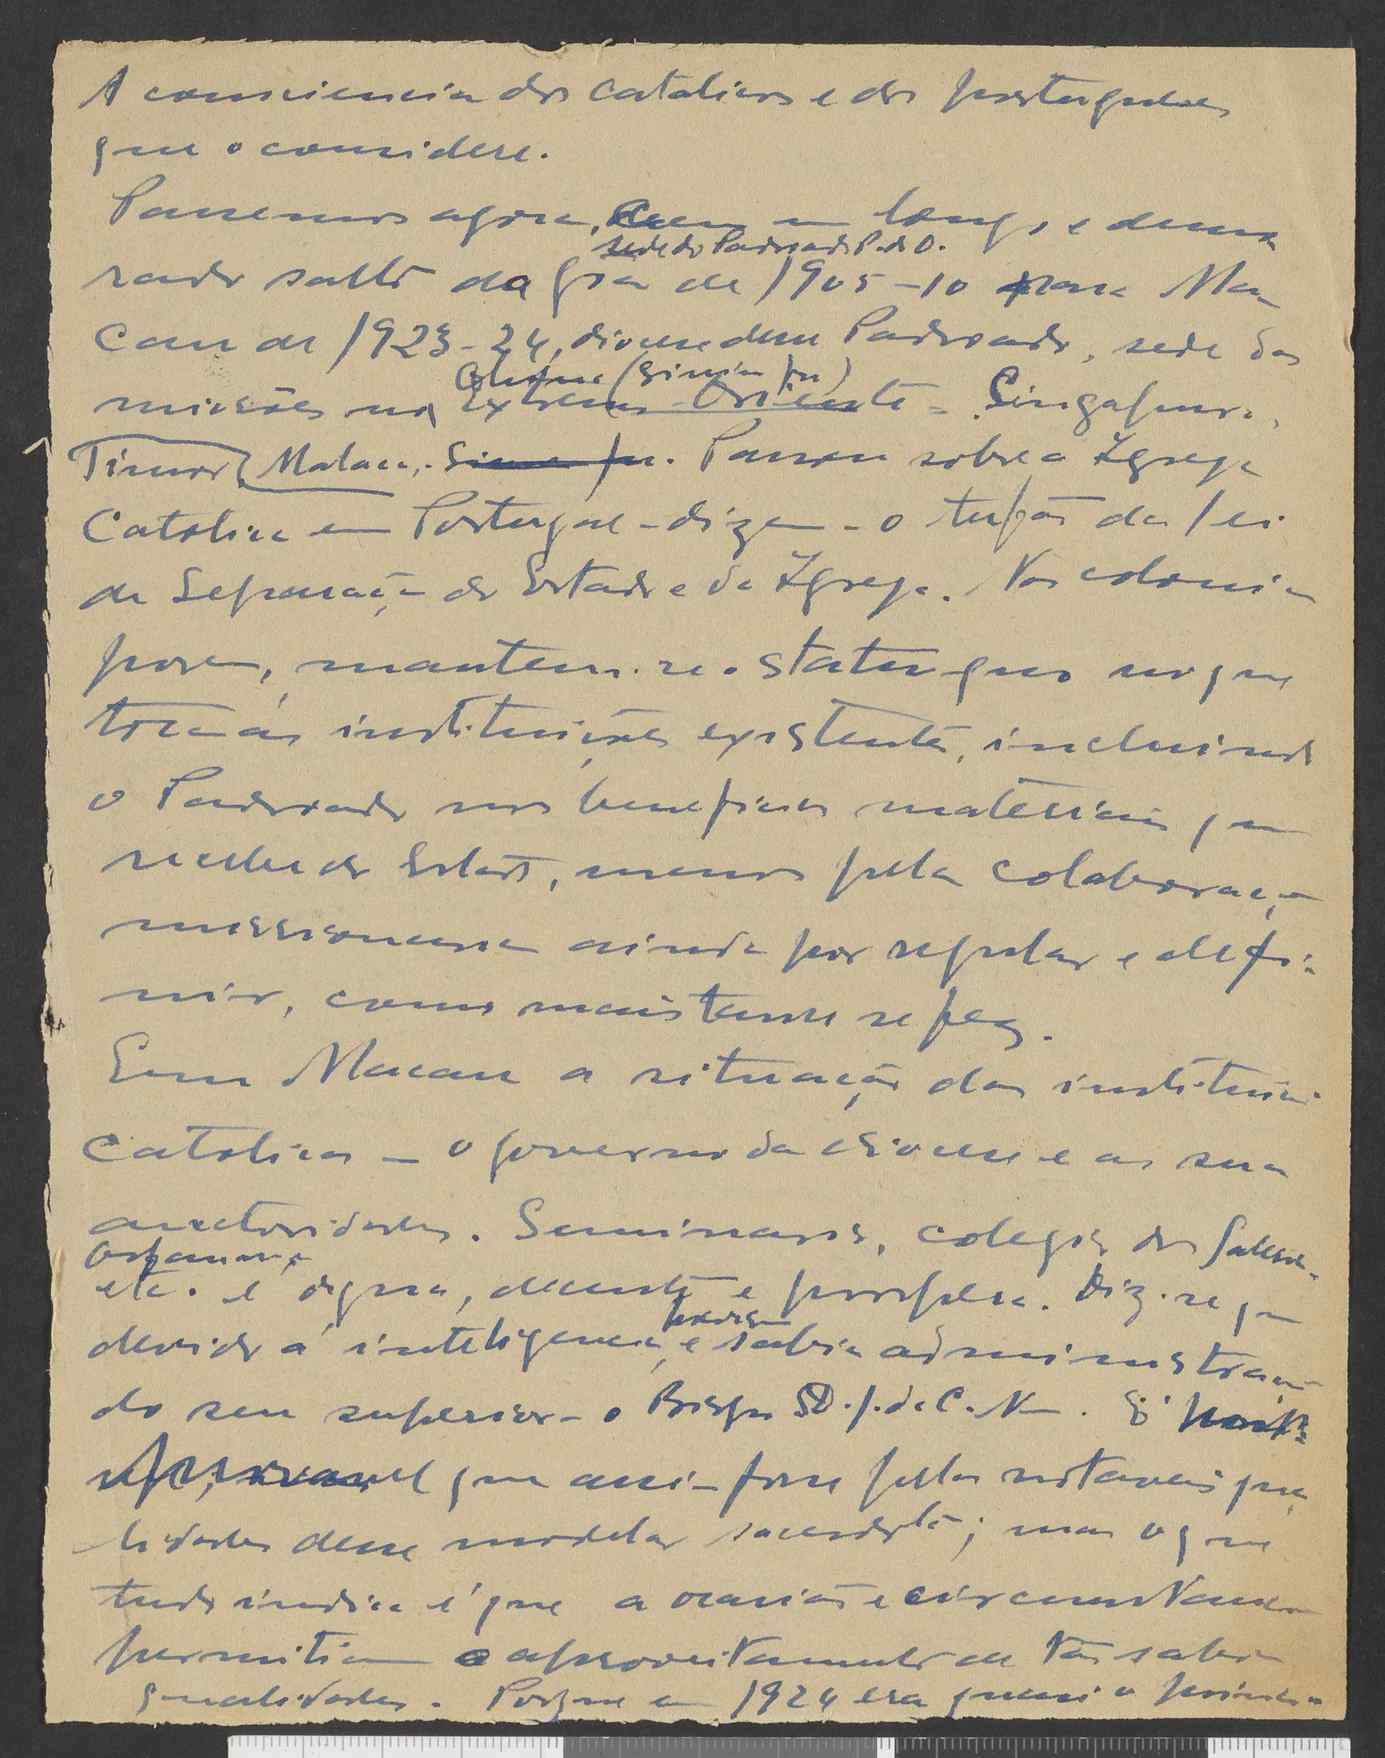 A consciencia dos catolicos e dos portugueses
que o considere.
Passemos agora, em longo e demo
sede do Padroado P. do O.
rado salto da Goa de 1905-10 para Ma
cau de 1923-24, diocese desse Padroado, sede das
missões na China (Siu in fu)
Extremo Oriente - Singapura,
Timor, Malaca. Passou sobre a Igreja
Catolica em Portugal - dizem - o tufão da lei
da Separação do Estado e da Igreja. Nas colonias
porem, mantem-se o statu-quo no que
toca ás instituições existentes, incluindo
o Padroado nos beneficios materiais que
recebe do Estado, menos pela colaboração
missionaria ainda por regular e defi-
nir, como mais tarde se fez.
Em Macau a situação das instituições
catolicas - o governo da diocese e as suas
auctoridades. Seminarios, colegios dos Salesia-
Orfanato
etc. é digna, decente e prospera. Diz-se que
devido á inteligencia, e sabia administração
do seu superior - o Bispo D. J. da C. N. É
que assim fosse pelas notaveis qua
lidades desse modelar sacerdote; mas o que
tudo indica é que a ocasião e circumstancias
permitiam o aproveitamento de tão sabias
qualidades. Porque em 1924 era quasi o primeiro